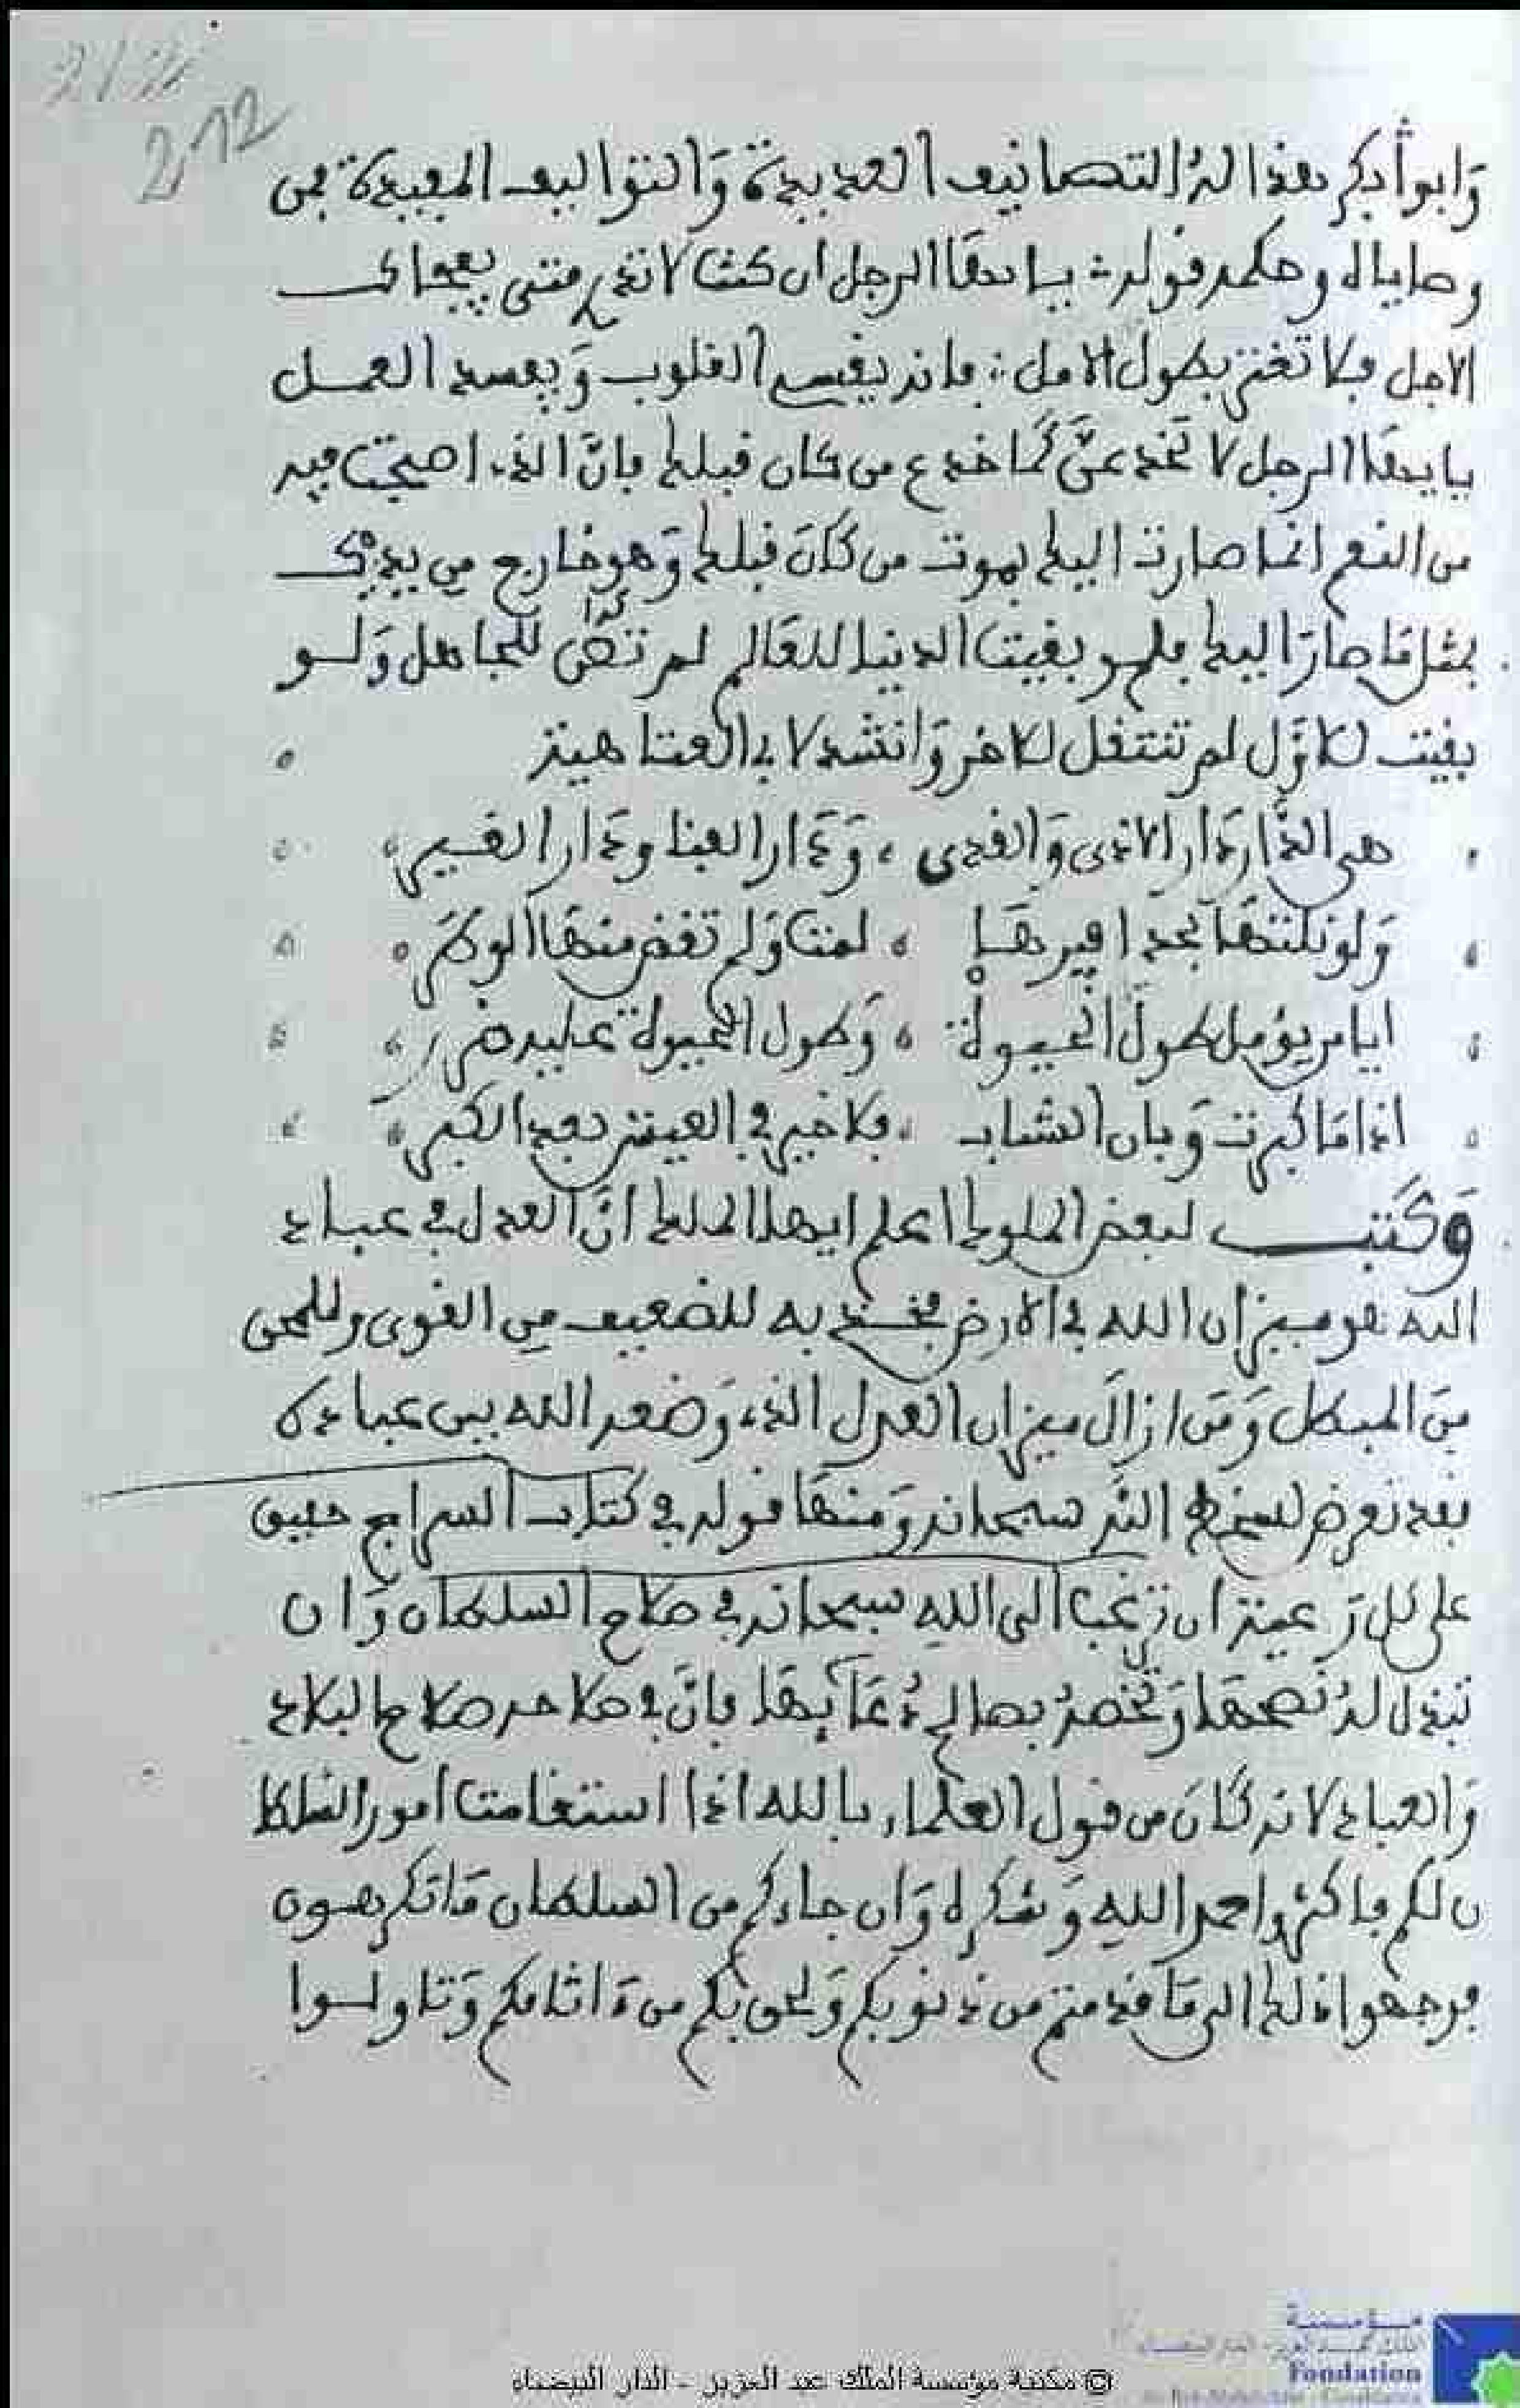 212
212
وَابوأبكر هذا لهُ التصانيف العديدة وَالتواليف المفيدة فمن
وصاياه وحكمه قوله يا هذا الرجل ان كنت لا تدري متى يفجاك
الاجل فلا تغتر بطول الامل فانه يقسي القلوب وَيفسد العمل
يا هذا الرجل لا تخدعنَّ كَما خدع من كان قبلك فإنَّ الذي اصبحت فيه
من النعم انما صارت اليك بموت من كانَ قبلك وَهو خارج مِن يديك
بمثل مَا صارَ اليك فلو بقيت الدنيا للعَالم لم تكن للجاهل وَلو
بقيت للاوَّل لم تنتقل للاخر وَانشد لابي العتاهية
هي الدَّار دَار الاذى وَالقذى وَدَار الفنا ودَار الغير
وَلو نلتهَا بحذافيرهَا لمت وَلم تقض منهَا الوطر
ايا من يؤمل طولَ الحيوة وَطول الحيوة عليه ضرر
اذا مَا كبرت وَبان الشباب فلا خير في العيش بعد الكبر
وَكتب لبعض الملوك اعلم ايها الملك انَّ العدل في عباد
الله هو ميزان الله في الارض يخد به للضعيف مِن القوى وللمحق
مِنَ المبطل وَمَن ازالَ ميزان العدل الذي وَضعه الله بين عباده
فقد تعرض لسخط اللهِ سبحانه وَمنهَا قوله في كتاب السراج حقيق
على كل رَعية ان ترغب الى اللهِ سبحانه في صلاح السلطان وَان
تبذل لهُ نصحهَا وَتخصهُ بصالح دُعَآئِهَا فإنَّ في صلاحه صلاح البلاد
وَالعباد لانه كَانَ من قول العلماء بالله اذا استقامت امور السلطا
ن لكم فاكثروا حمد اللهِ وَشكره وَان جاءكم من السلطان مَا تكرهون
فوجهوا ذلك الى مَا قدمتم من ذنوبكم وَلحق بكم من ءَاثامكم وَتاولوا
© مكتبة مؤسسة الملك عبد العزيز - الدار البيضاء
مؤسسة
Fondation